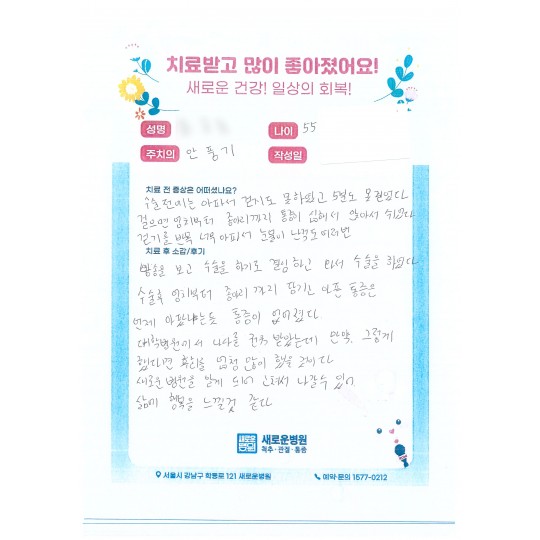 치료받고 많이 좋아졌어요!
새로운 건강! 일상의 회복!
성명
나이 55
주치의 안 풍기
작성일
치료 전 증상은 어떠셨나요?
수술전에는 아파서 걷기도 못하였고 5분도 못걸었다
걸으면 엉치부터 종아리까지 통증이 심해서 앉아서 쉬었다
걷기를 반복 너무 아파서 눈물이 난적도 여러번
치료 후 소감/후기
방송을 보고 수술을 하기로 결심하고 와서 수술을 하였다
수술후 엉치부터 종아리 까지 당기고 아픈 통증은
언제 아팠냐는듯 통증이 없어졌다
대학병원에서 나사를 권유 받았는데 만약, 그렇게
했다면 후회를 엄청 많이 했을 것이다
새로운병원을 알게 되어 고쳐서 나갈수 있어
삶의 행복을 느낄것 같다
새로운병원
척추·관절·통증
서울시 강남구 학동로 121 새로운병원
예약·문의 1577-0212